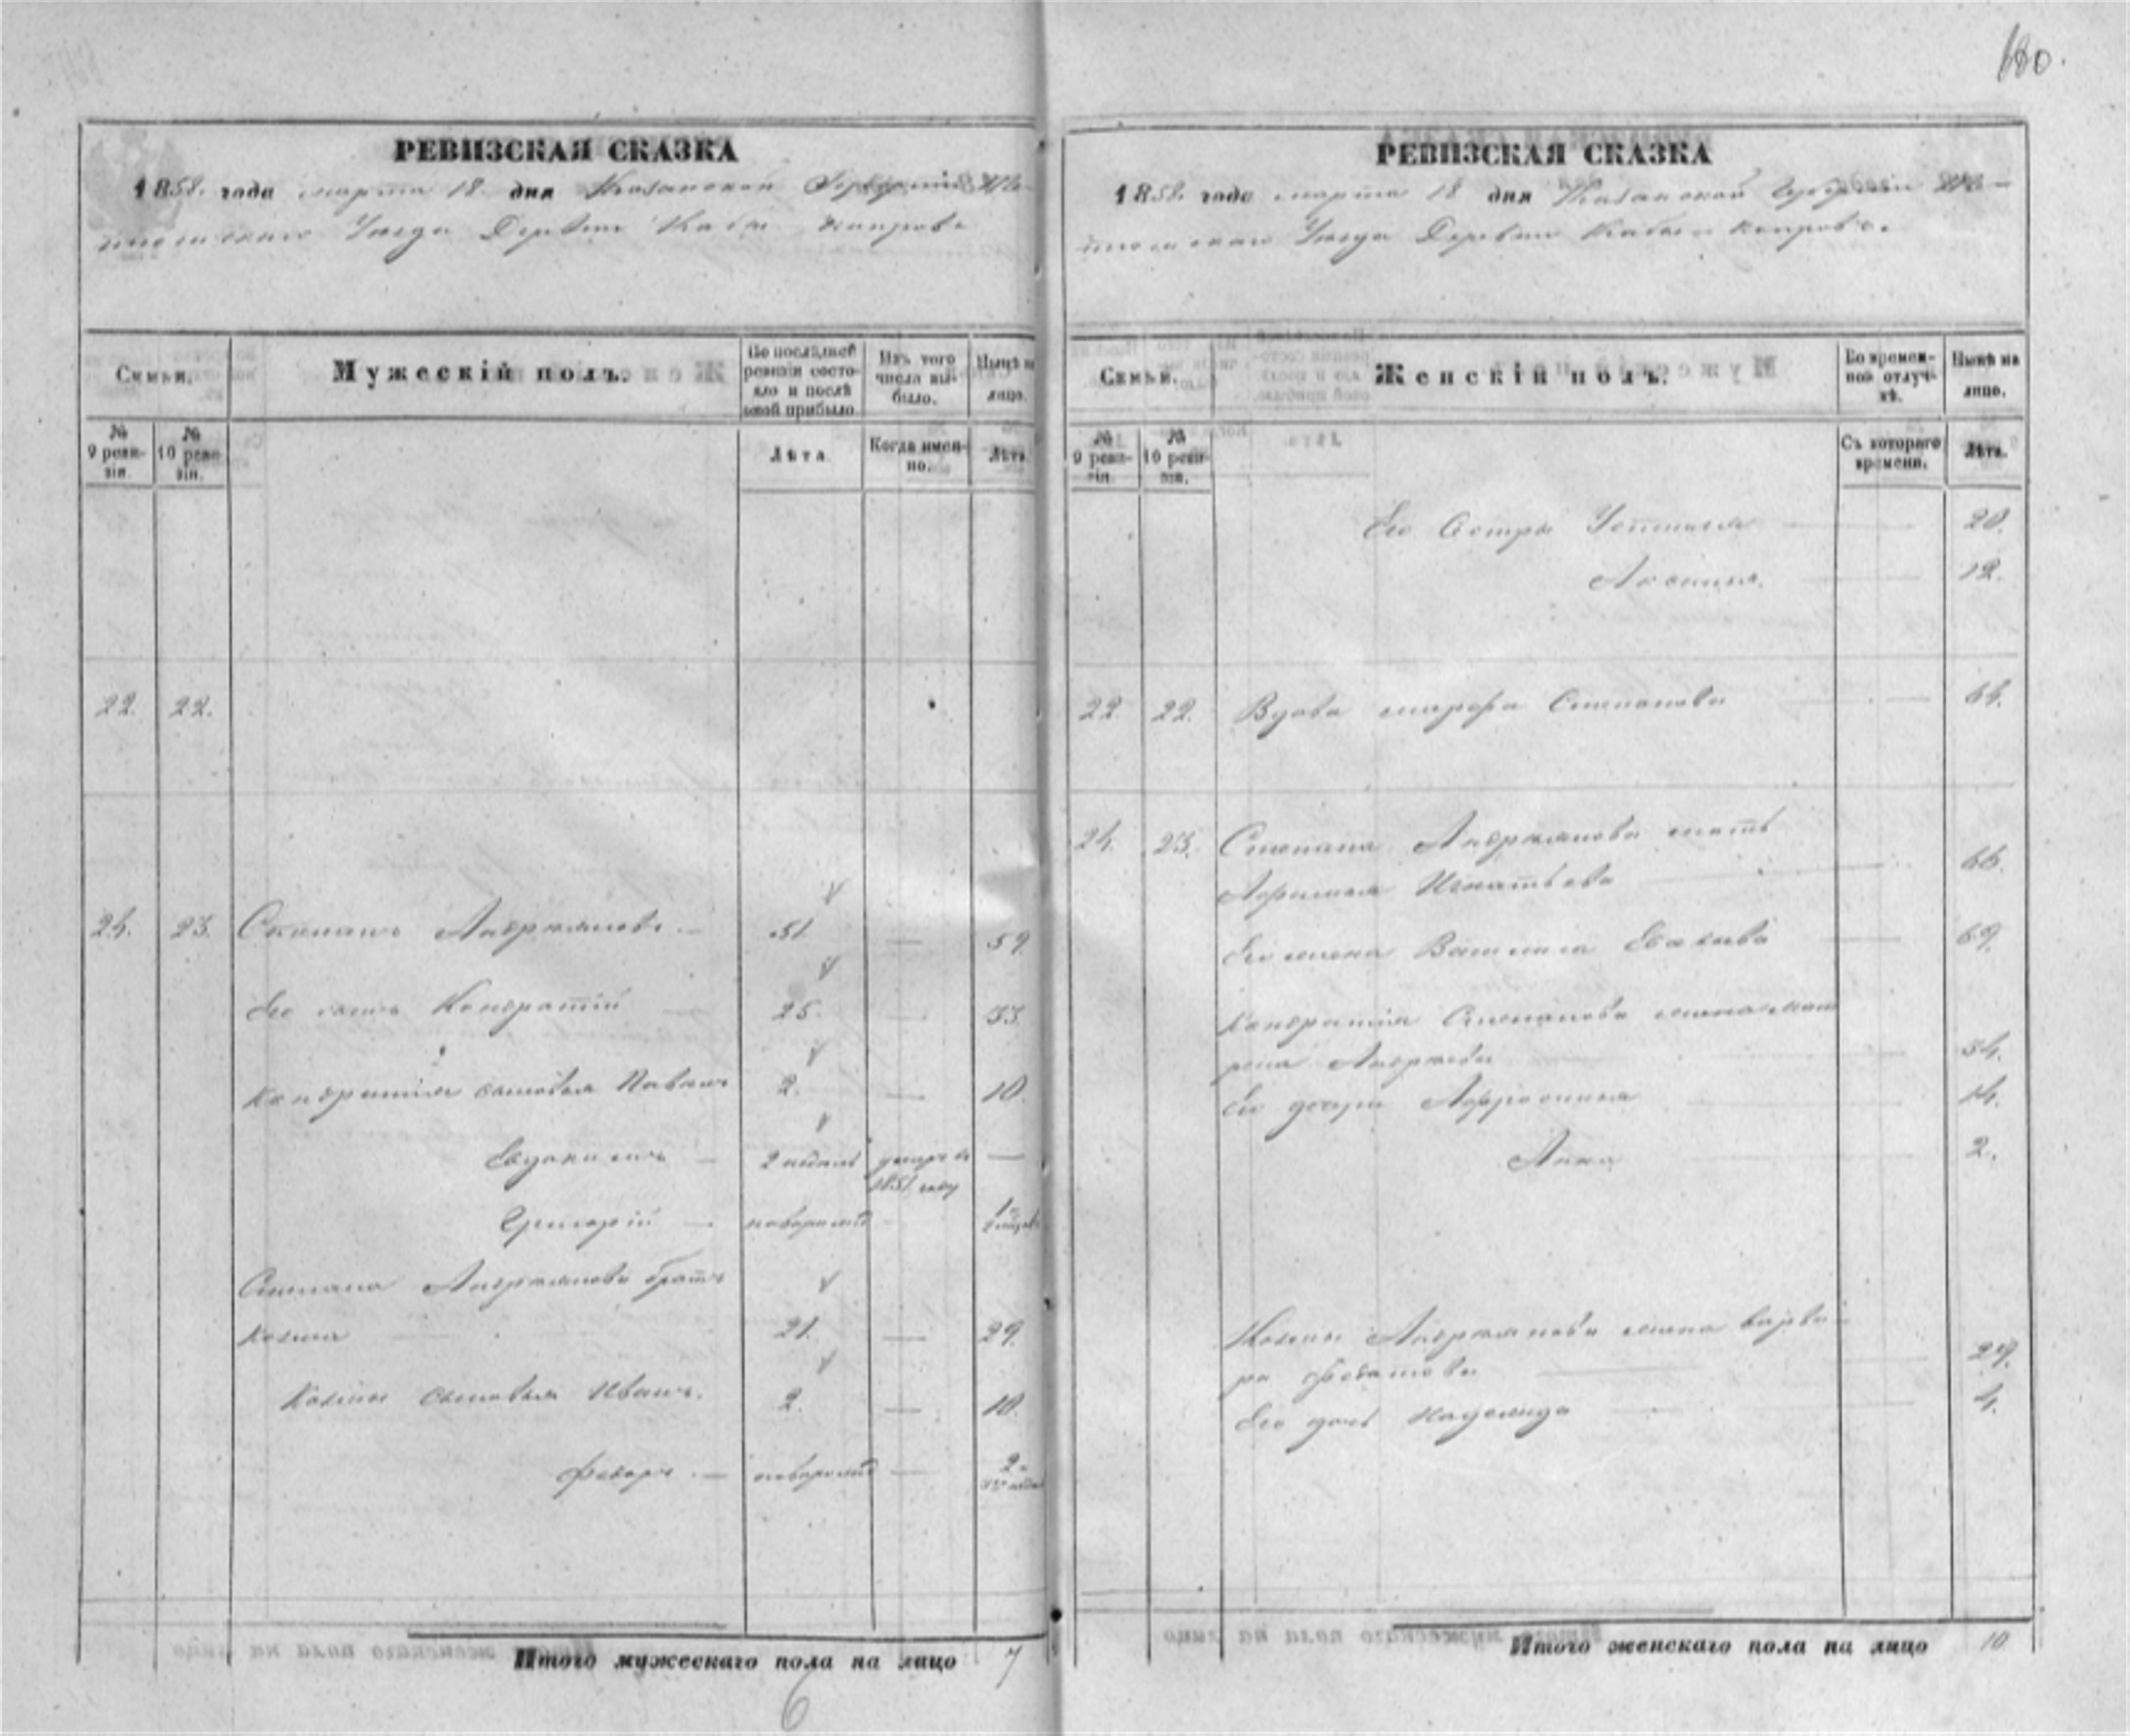 180.
РЕВИЗСКАЯ СКАЗКА
1858. года марта 18. дня Казанской Губернии
Уезда Деревни
Семьи.
Мужескій полъ.
По послѣдней ревизіи состояло и послѣ оной прибыло.
Изъ того числа выбыло.
Нынѣ на лицо.
№ 9 ревизіи.
№ 10 ревизіи.
Лѣта
Когда именно.
Лѣта
22. 22.
24. 23. Степанъ Андреяновъ — 51 — 59
Его сынъ Кондратій — 25. — 33
Кондратія сыновья 2. — 10.
Евдокимъ — умеръ въ 1851 году —
Григорій — новорожд — 1
Степана Андреянова братъ
Козма — 21. — 29.
Козмы сыновья Иванъ. 2. — 10.
Федоръ. — новорожд — 2
Итого мужескаго пола на лицо 7
6
РЕВИЗСКАЯ СКАЗКА
1858. года марта 18 дня Казанской Губернии
Уезда Деревни
Семьи.
Женскій полъ.
Во временной отлучкѣ.
Нынѣ на лицо.
№ 9 ревизіи.
№ 10 ревизіи.
Съ котораго времени.
Лѣта.
Его Сестры Устинья — 20.
Аксинья. — 12.
22 22. Вдова Марфа Степанова — 64.
24. 23. Степана Андреянова мать
Игнатьева — 66.
Его жена Василиса — 69.
Кондратія Степанова жена Мат
рена Андреева — 34.
Его дочери Афросинья — 14.
Анна — 2.
Козмы Андреянова жена Варва-
ра Федотова — 29.
Его дочь Надежда — 4.
Итого женскаго пола на лицо 10